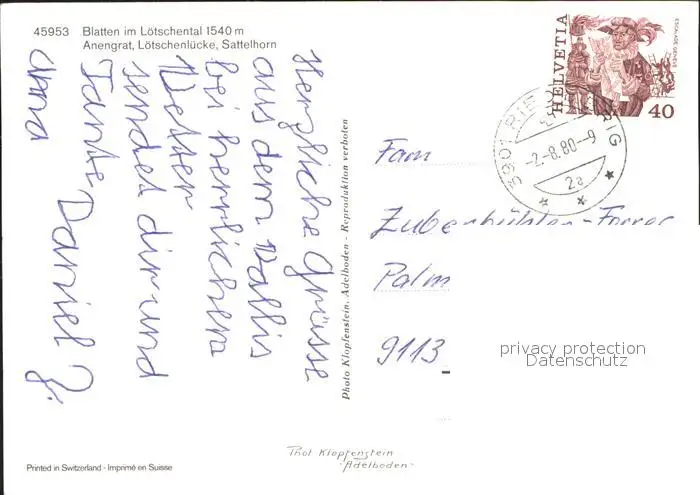 45953 Blatten im Lötschental 1540 m
Anengrat, Lötschenlücke, Sattelhorn
Herzliche Grüsse
aus dem Wallis
bei herrlichem
Wetter
sendet dir und
Tante
Daniel Z.
HELVETIA
ESCALADE GENÈVE
40
3901
BRIG
-2.-8.80--9
2a
Fam
Zuberbühler-Forrer
Palm
9113
privacy protection
Datenschutz
Photo Klopfenstein, Adelboden - Reproduktion verboten
Phot Klopfenstein
-Adelboden-
Printed in Switzerland - Imprimé en Suisse